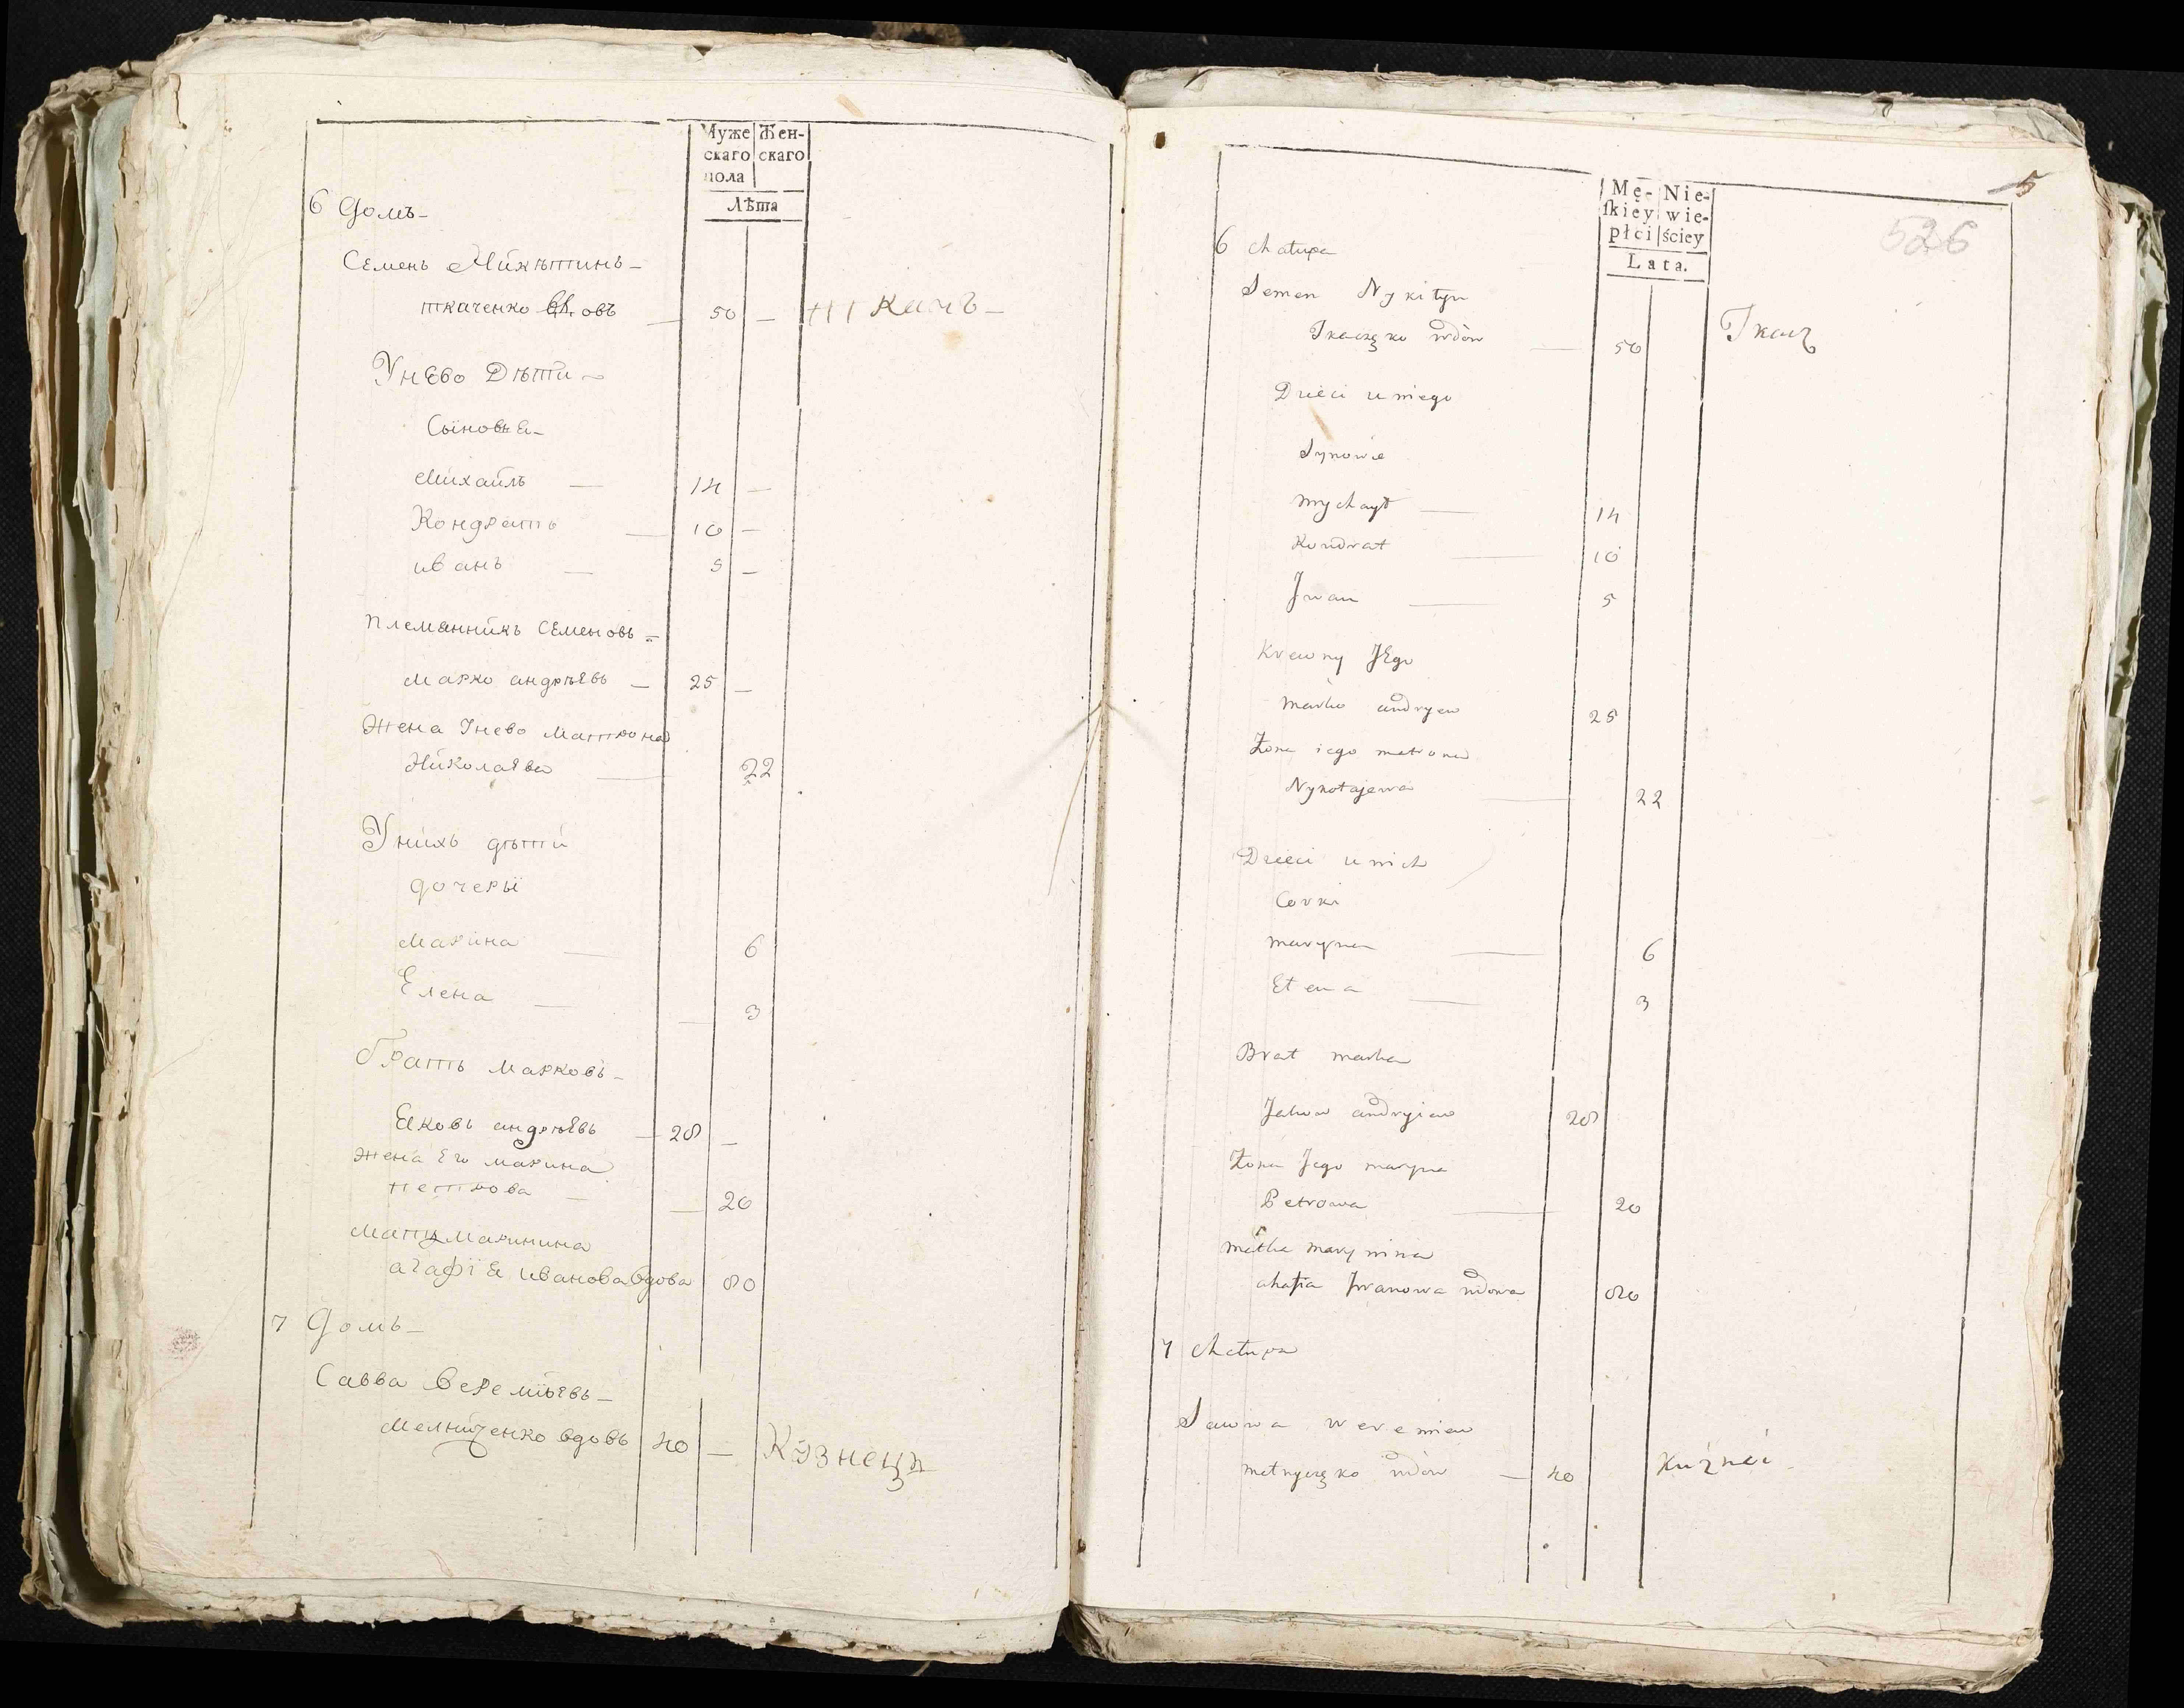 Муже Жен-
скаго скаго
пола
Лѣта
6 Домъ
Семенъ Никѣтинъ
ткаченко вдовъ 50 — ткачъ
Унево Дѣти
Сыновья
Михайлъ — 14 —
Кондратъ — 10 —
иванъ — 5 —
племянникъ Семеновъ
Марко андрѣевъ — 25 —
Жена Унево Матрона
Николаева — 22
Унихъ дѣти
дочеръи
Марина — 6
Елена — 3
братъ Марковъ
Яковъ андрѣевъ — 28 —
жена Его марина
петрова — 20
Мать Маринина
агафія иванова вдова 80
7 Домъ
Савва Веремѣевъ
Мелниченко вдовъ 40 — Кузнецъ
5
526
Mę- Nie-
ſkiey wie-
płci ściey
Lata.
6 chałupa
Semen Nykityn
Tkaczęko wdów — 50 Tkacz
Dzieci u niego
Synowie
Mychaył — 14
Kondrat — 10
Jwan — 5
Krewny JEgo
Marko andryew 25
Żona iego matrona
Nykołajewa — 22
Dzieci u nich
Corki
maryna — 6
Ełena — 3
Brat marka
Jakow andryiew 28
Żona Jego maryna
Petrowa — 20
matka marynina
ahafia Jwanowa wdowa 80
7 chałupa
Sawwa weremiew
mełnyczęko wdów — 40 Kuźnéc